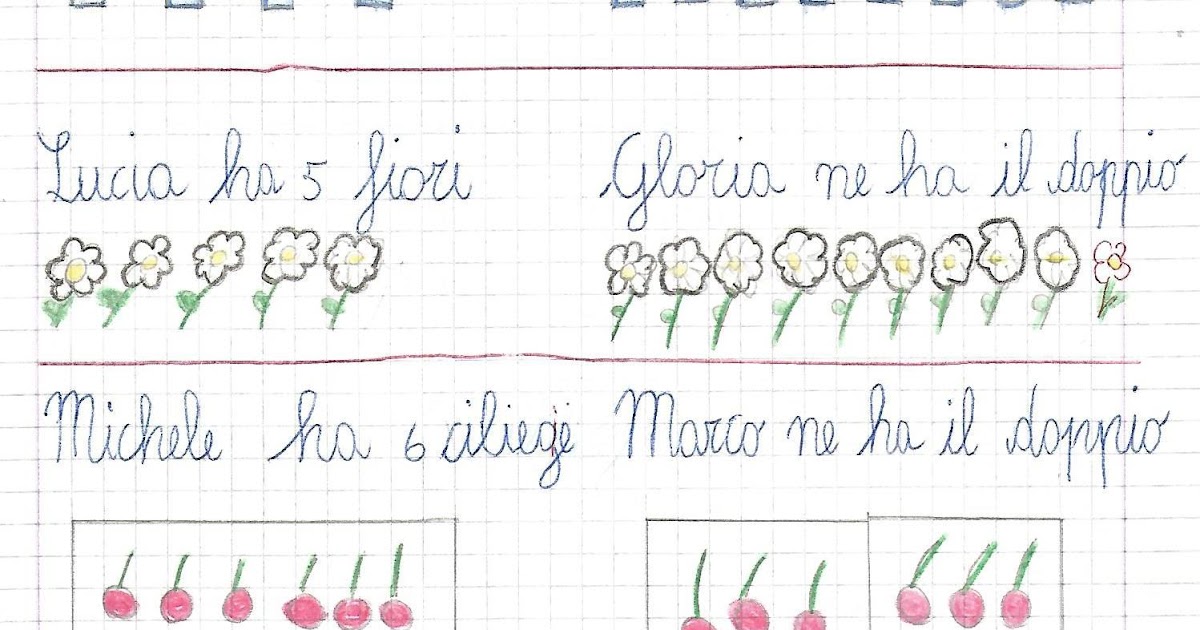 Lucia ha 5 fiori
Gloria ne ha il doppio
Michele ha 6 ciliegie
Marco ne ha il doppio